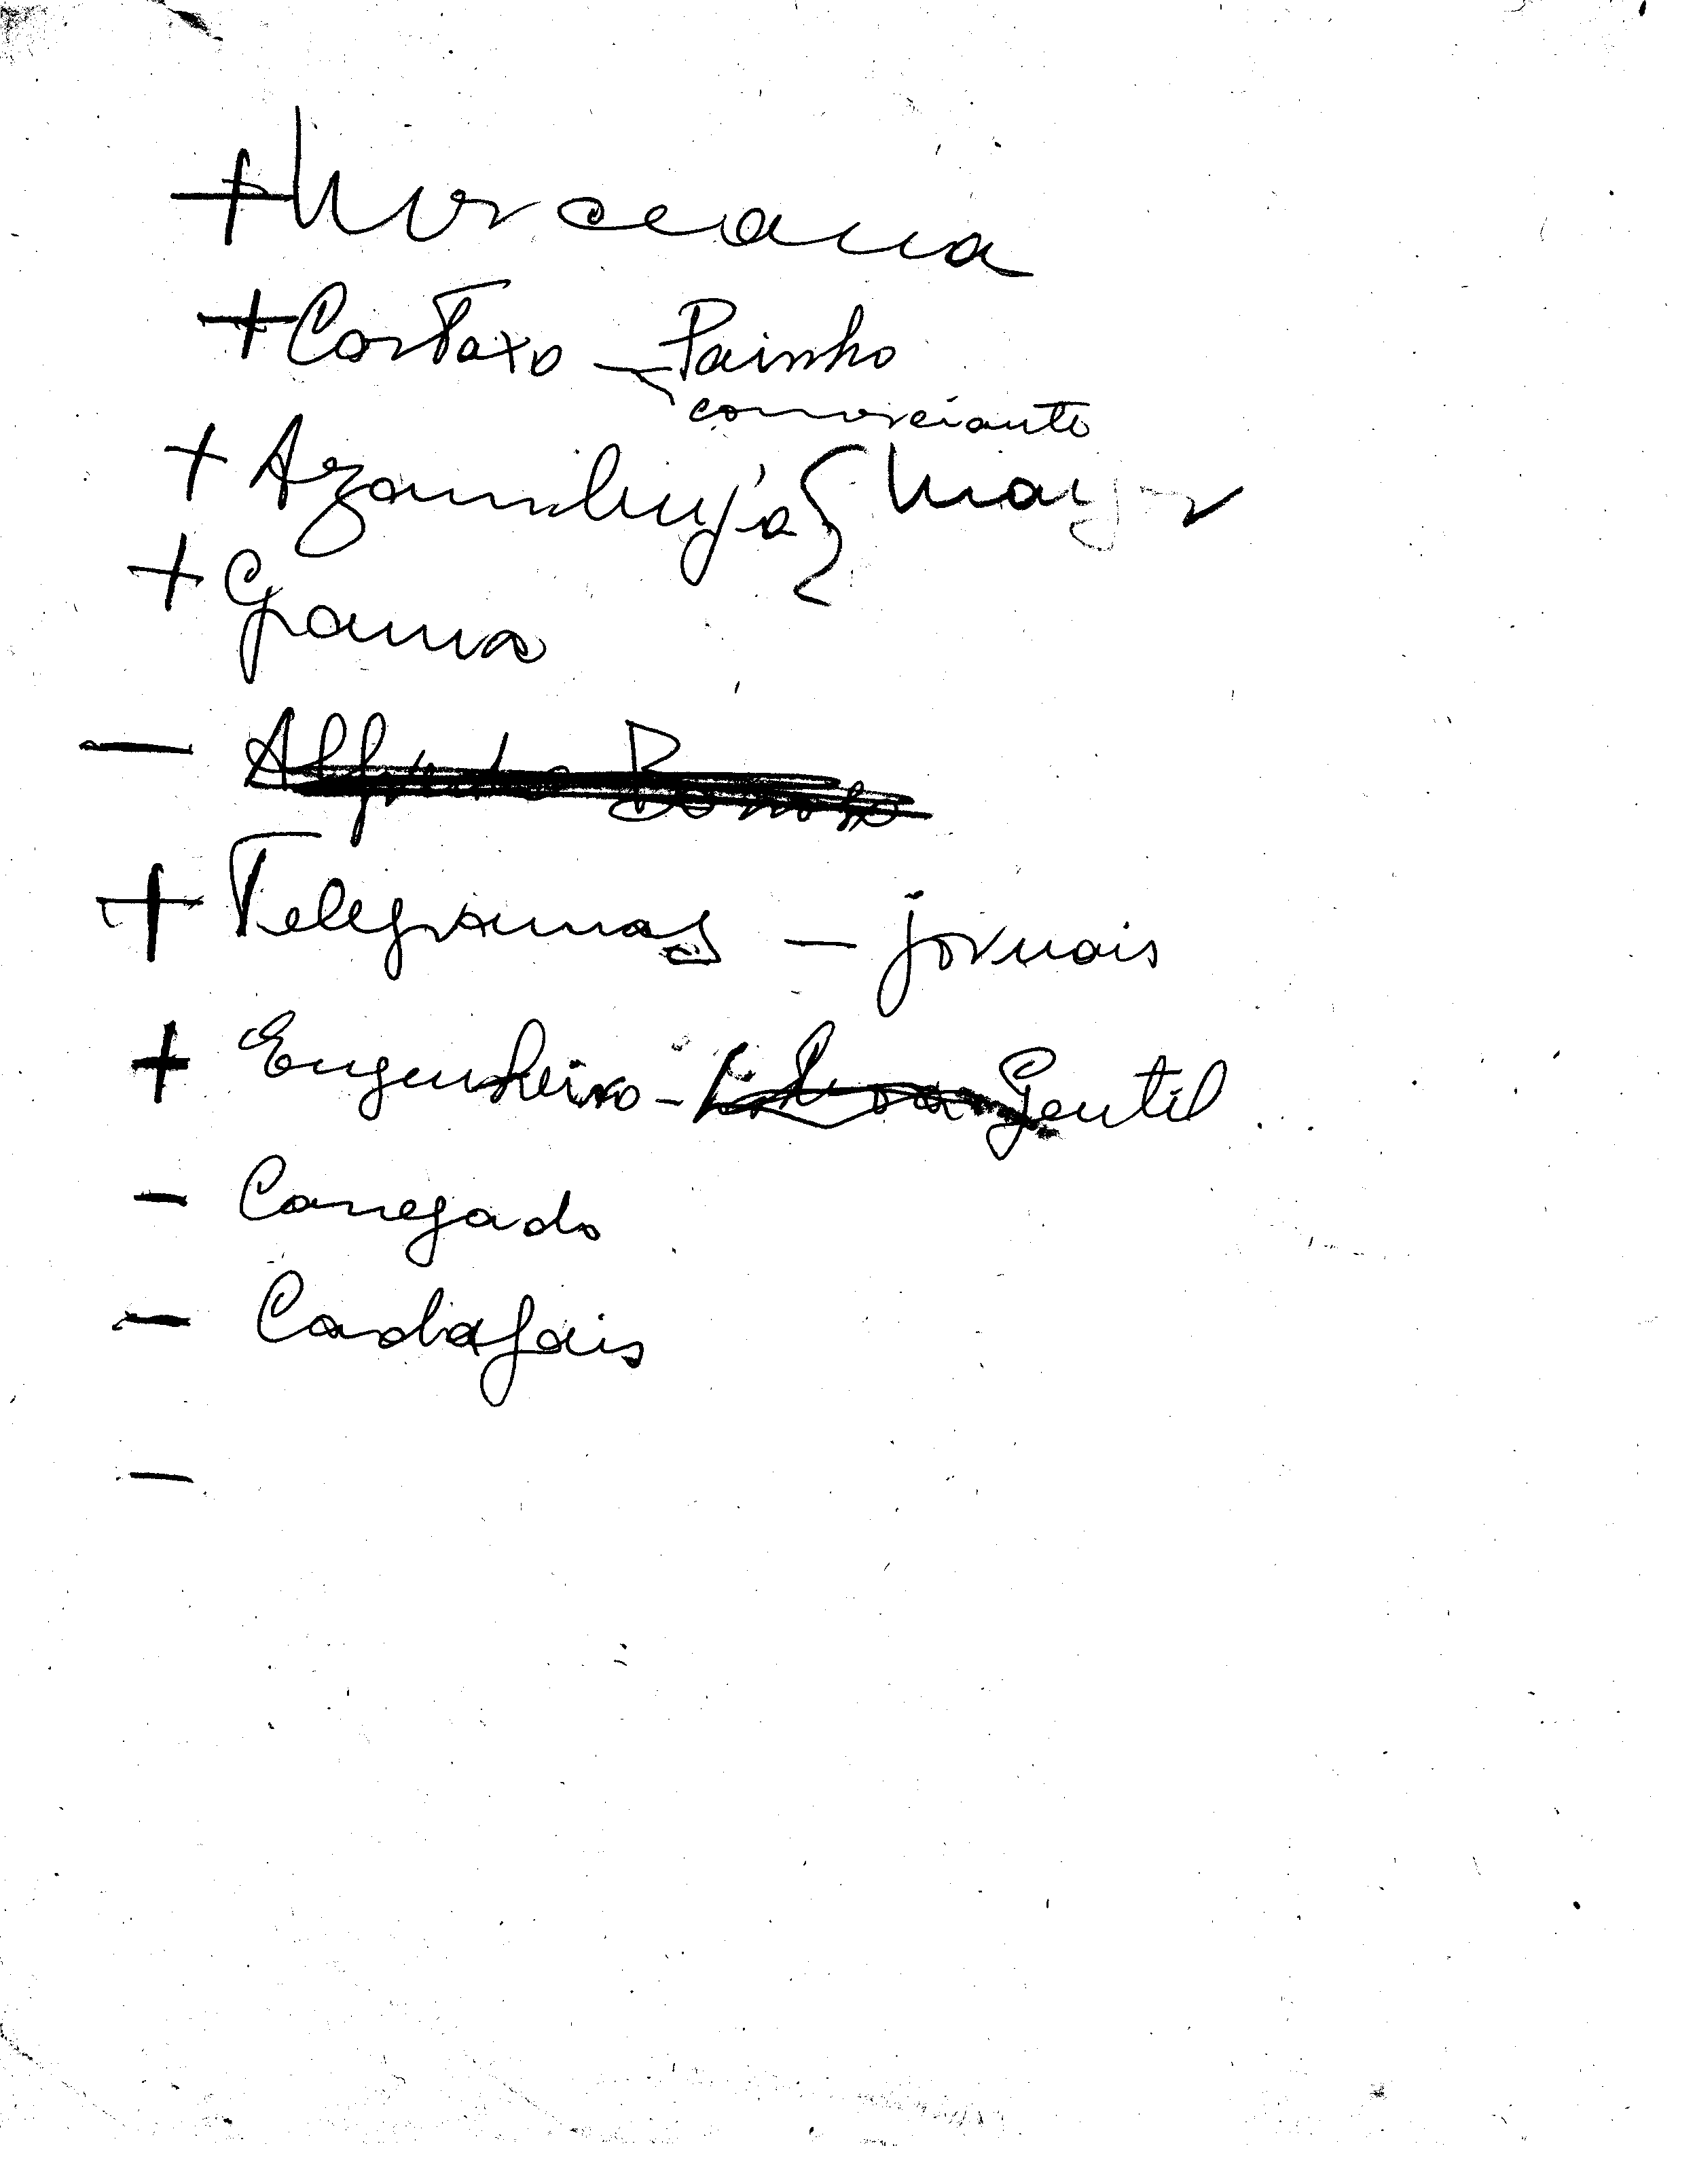 + Merceana
+ Cartaxo - Painho
comerciante
+ Azambuja { Major
+ Grama
- Alfredo
+ Telegramas - jornais
+ Engenheiro - Gentil
- Carregado
- Cadafais
-